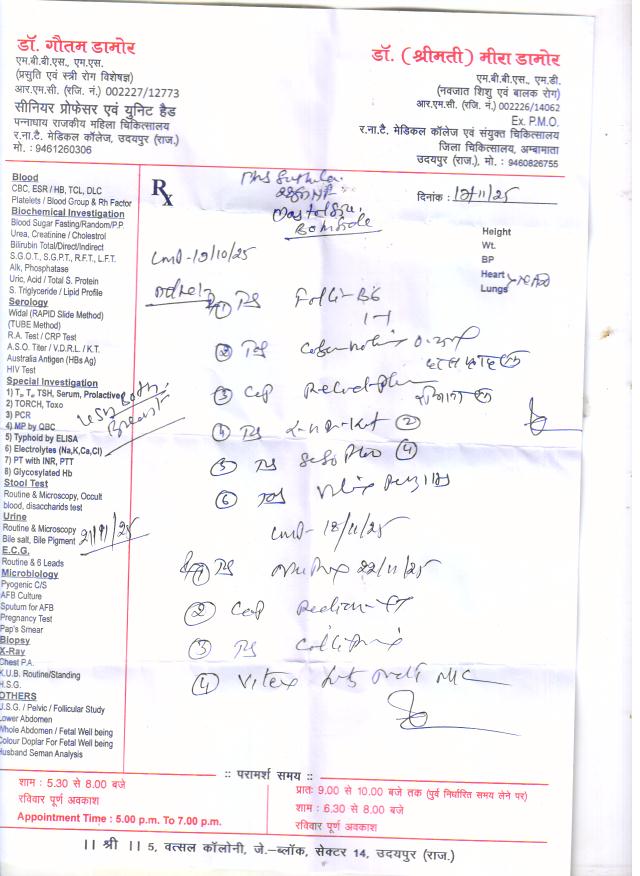 डॉ. गौतम डामोर
एम.बी.बी.एस., एम.एस.
(प्रसुति एवं स्त्री रोग विशेषज्ञ)
आर.एम.सी. (रजि. नं.) 002227/12773
सीनियर प्रोफेसर एवं युनिट हैड
पन्नाधाय राजकीय महिला चिकित्सालय
र.ना.टै. मेडिकल कॉलेज, उदयपुर (राज.)
मो. : 9461260306
डॉ. (श्रीमती) मीरा डामोर
एम.बी.बी.एस., एम.डी.
(नवजात शिशु एवं बालक रोग)
आर.एम.सी. (रजि. नं.) 002226/14062
Ex. P.M.O.
र.ना.टै. मेडिकल कॉलेज एवं संयुक्त चिकित्सालय
जिला चिकित्सालय, अम्बामाता
उदयपुर (राज.), मो. : 9460826755
Blood
CBC, ESR / HB, TCL, DLC
Platelets / Blood Group & Rh Factor
Biochemical Investigation
Blood Sugar Fasting/Random/P.P.
Urea, Creatinine / Cholestrol
Bilirubin Total/Direct/Indirect
S.G.O.T., S.G.P.T., R.F.T., L.F.T.
Alk, Phosphatase
Uric, Acid / Total S. Protein
S. Triglyceride / Lipid Profile
Serology
Widal (RAPID Slide Method)
(TUBE Method)
R.A. Test / CRP Test
A.S.O. Titer / V.D.R.L. / K.T.
Australia Antigen (HBs Ag)
HIV Test
Special Investigation
1) T₃, T₄, TSH, Serum, Prolactive
2) TORCH, Toxo
3) PCR
4) MP by QBC
5) Typhoid by ELISA
6) Electrolytes (Na,K,Ca,Cl)
7) PT with INR, PTT
8) Glycosylated Hb
Stool Test
Routine & Microscopy, Occult
blood, disaccharids test
Urine
Routine & Microscopy
Bile salt, Bile Pigment
E.C.G.
Routine & 6 Leads
Microbiology
Pyogenic C/S
AFB Culture
Sputum for AFB
Pregnancy Test
Pap's Smear
Biopsy
X-Ray
Chest P.A.
K.U.B. Routine/Standing
H.S.G.
OTHERS
U.S.G. / Pelvic / Follicular Study
Lower Abdomen
Whole Abdomen / Fetal Well being
Colour Doplar For Fetal Well being
Husband Seman Analysis
Both
Breast
Rx
दिनांक :
Height
Wt.
BP
Heart
Lungs
LMP-19/10/25
① Tab Folli-B6
1-1
② Tab 0.25
③ Cap
④ Tab ②
⑤ Tab ④
⑥ Tab
LMP- 18/11/25
① Tab 22/11/25
② Cap
③ Tab
④ Vitex
:: परामर्श समय ::
शाम : 5.30 से 8.00 बजे
रविवार पूर्ण अवकाश
Appointment Time : 5.00 p.m. To 7.00 p.m.
प्रातः 9.00 से 10.00 बजे तक (पुर्व निर्धारित समय लेने पर)
शाम : 6.30 से 8.00 बजे
रविवार पूर्ण अवकाश
|| श्री || 5, वत्सल कॉलोनी, जे.-ब्लॉक, सेक्टर 14, उदयपुर (राज.)